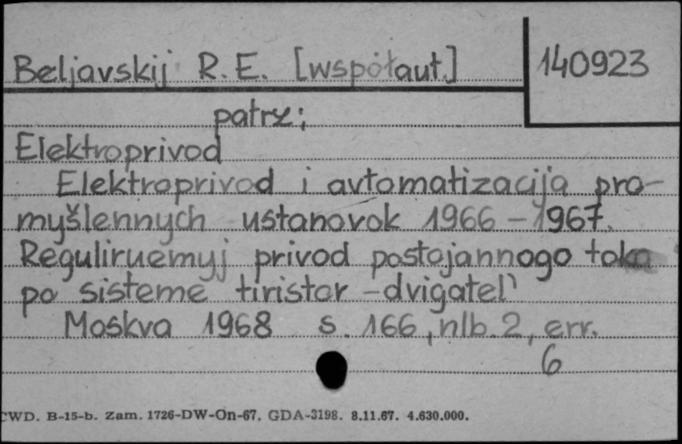 Beljavskij R.E. [współaut.]
140923
patrz:
Elektroprivod
Elektroprivod i avtomatizacija pro-
myšlennych ustanovok 1966-1967.
Reguliruemyj privod postojannogo toka
po sisteme tiristor-dvigatel'
Moskva 1968 s. 166, nlb. 2, err.
6
CWD. B-15-b. Zam. 1726-DW-On-67. GDA-3198. 8.11.67. 4.630.000.